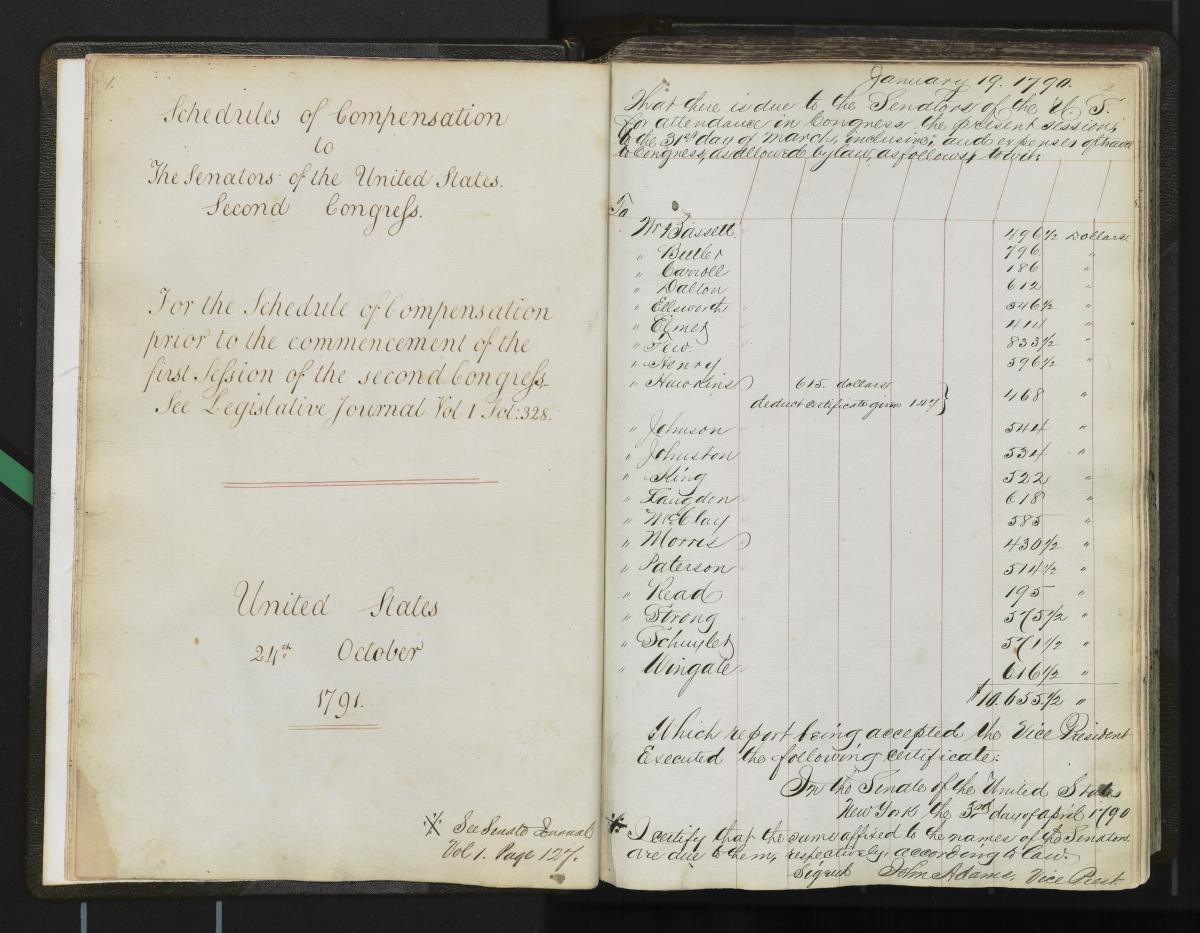 1.
Schedules of Compensation
to
The Senators of the United States.
Second Congress.
For the Schedule of Compensation
prior to the commencement of the
first Session of the second Congress
See Legislative Journal Vol 1 Fol: 328.
United States
24th October
1791.
See Senate Journal
Vol 1. Page 127.
January 19. 1790.
2
That there is due to the Senators of the U S.
for attendance in Congress the present session,
to the 31st day of March, inclusive; and expenses of travel
to Congress, as allowed by law, as follows, to wit:
To
Mr Bassett. 496 1/2 Dollars
" Butler 796. "
" Carroll 186 "
" Dalton 612 "
" Ellsworth 546 1/2 "
" Elmer 414 "
" Few. 833 1/2 "
" Henry 596 1/2 "
" Hawkins 615. dollars
deduct certificate given 147 } 468 "
" Johnson 544 "
" Johnston 534 "
" King 522 "
" Langdon 618 "
" McClay 585 "
" Morris 430 1/2 "
" Paterson 514 1/2 "
" Read 195 "
" Strong 575 1/2 "
" Schuyler 571 1/2 "
" Wingate 616 1/2 "
$10.655.1/2 "
Which report being accepted the Vice President
Executed the following certificate:
In the Senate of the United States
New York the 3rd day of April 1790
I certify that the sums affixed to the names of the Senators
are due to them, respectively, according to law.
Signed John Adams, Vice Prest.